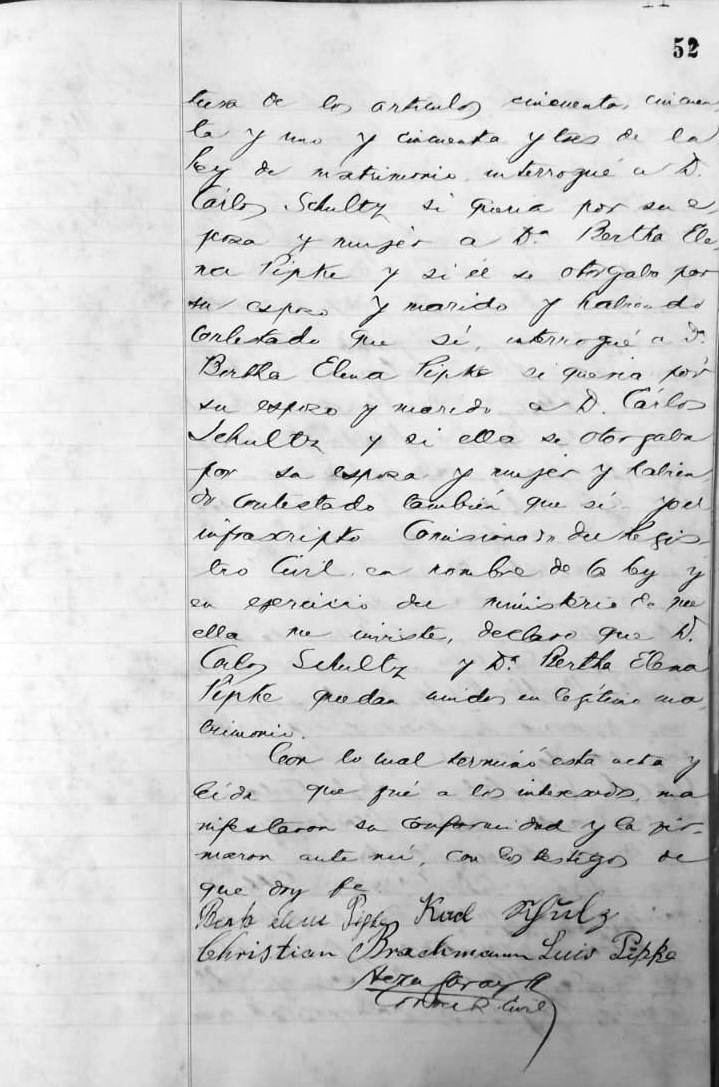 52
tura de los artículos cincuenta, cincuen
ta y uno y cincuenta y tres de la
ley de matrimonio interrogué a D.
Cárlos Schultz si queria por su es
posa y mujér a Dª Bertha Ele
na Pipke y si él se otorgaba por
su esposo y marido y habiendo
contestado que sí, interrogué a Dª
Bertha Elena Pipke si queria por
su esposo y marido a D. Cárlos
Schultz y si ella se otorgaba
por su esposa y mujér y habien
do contestado también que sí yo el
infrascripto Comisionado del Regis
tro Civil, en nombre de la ley y
en ejercicio del ministerio de que
ella me inviste, declaro que D.
Carlos Schultz y Dª Bertha Elena
Pipke quedan unidos en legítimo ma
trimonio.
Con lo cual terminó esta acta y
leida que fué a los interesados, ma
nifestaron su conformidad y la fir-
maron ante mí, con los testigos de
que doy fe
Berta Pipke Karl Schulz
Christian Brachmann Luis Pipke
R. Civil